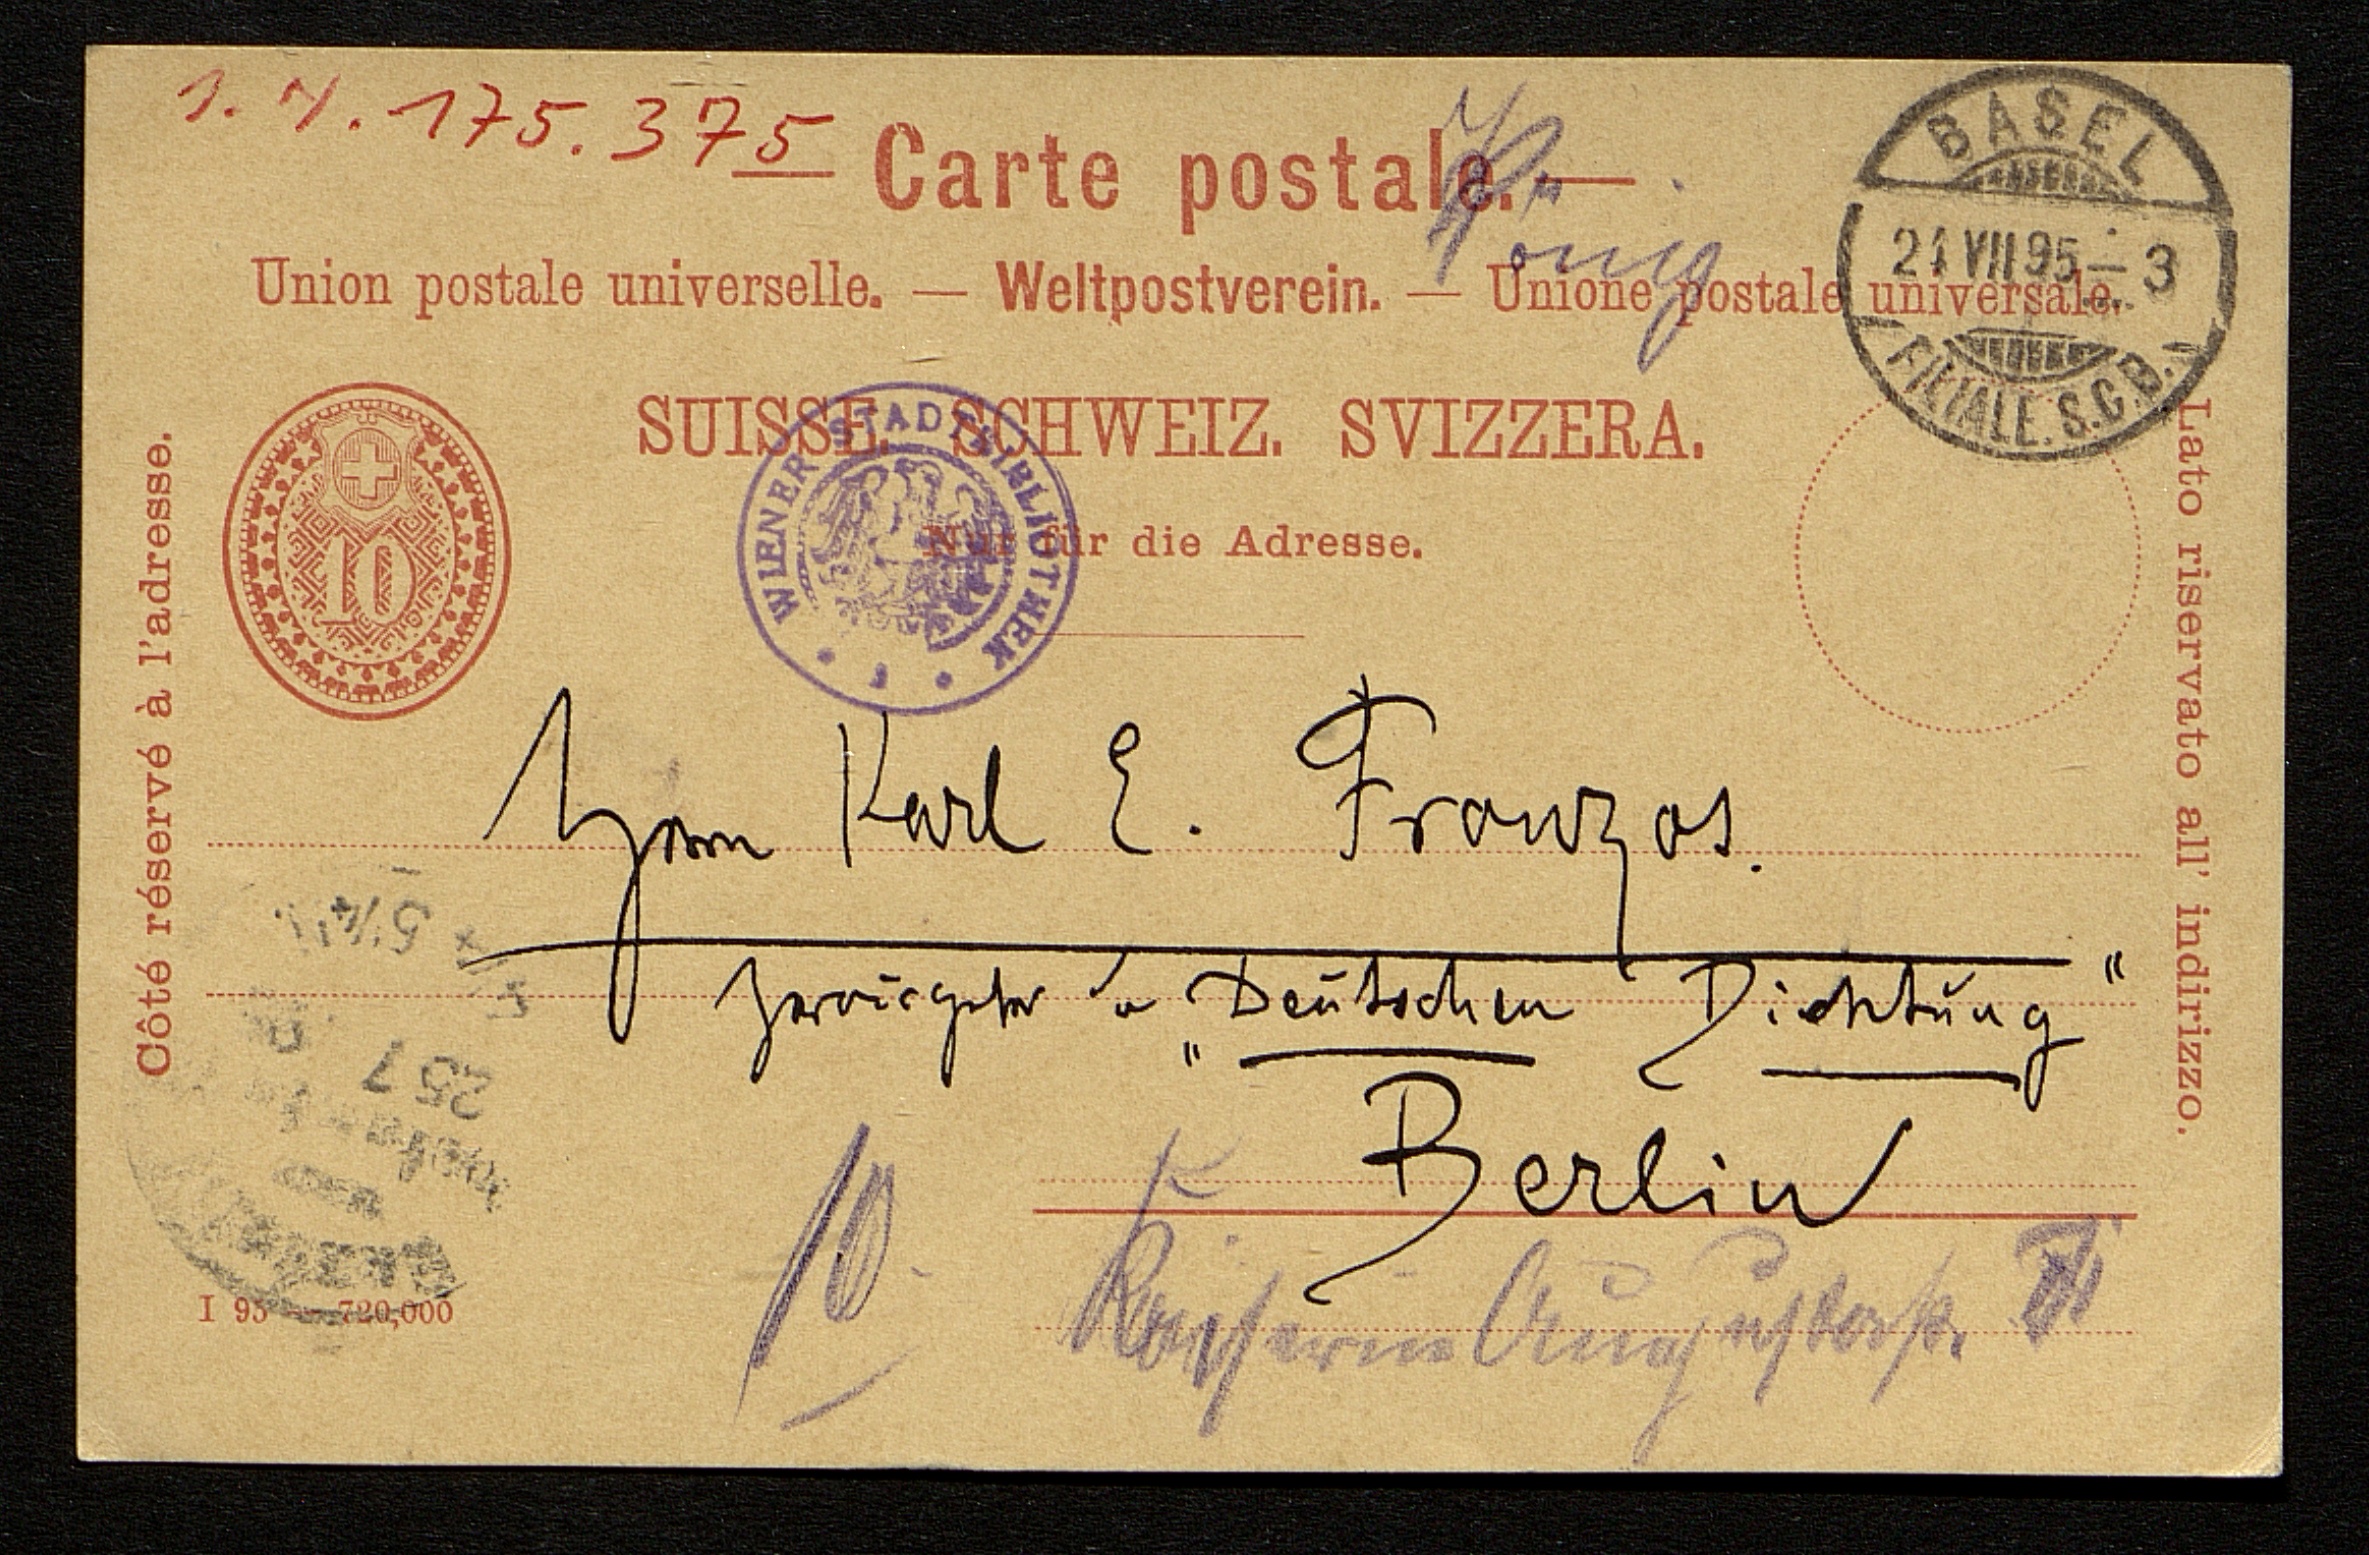 1. N. 175.375
Carte postale.
Union postale universelle. — Weltpostverein. — Unione postale universale.
BASEL
21 VII 95 – 3
FILIALE. S.C.B.
SUISSE. SCHWEIZ. SVIZZERA.
Nur für die Adresse.
WIENER STADTBIBLIOTHEK
10
Côté réservé à l'adresse.
Lato riservato all' indirizzo.
Herrn Karl E. Franzos.
Herausgeber d
"Deutschen Dichtung"
Berlin
10
Kaiserin Augustastr.
25 7
5¼
I 95 — 720,000